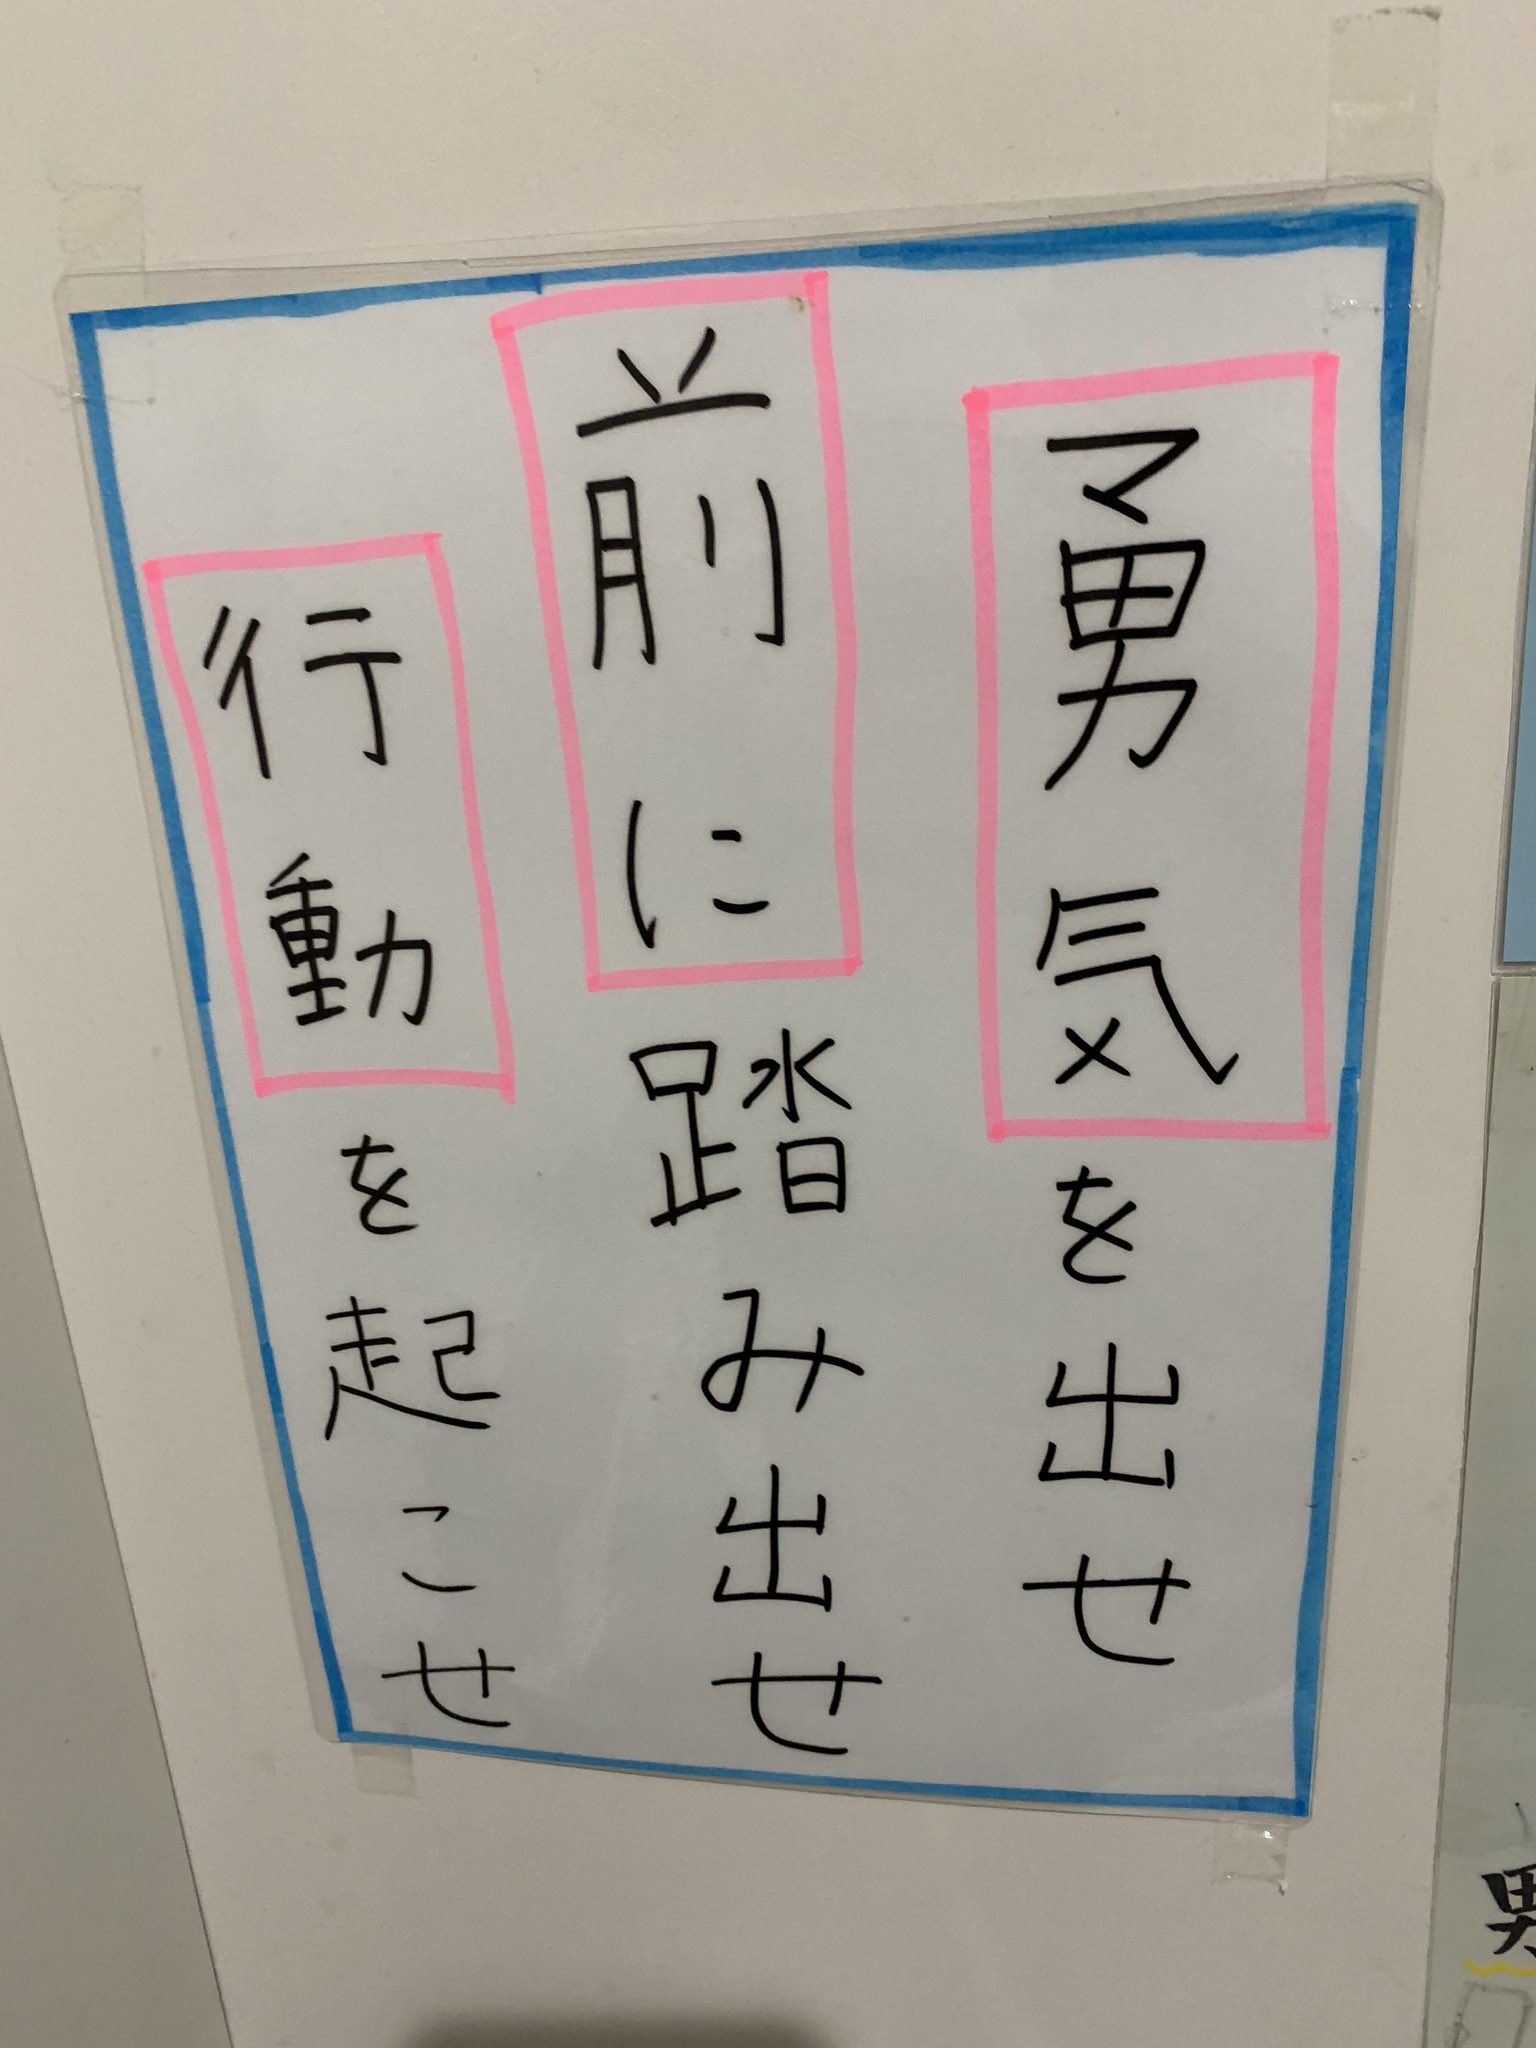 勇気を出せ
前に踏み出せ
行動を起こせ